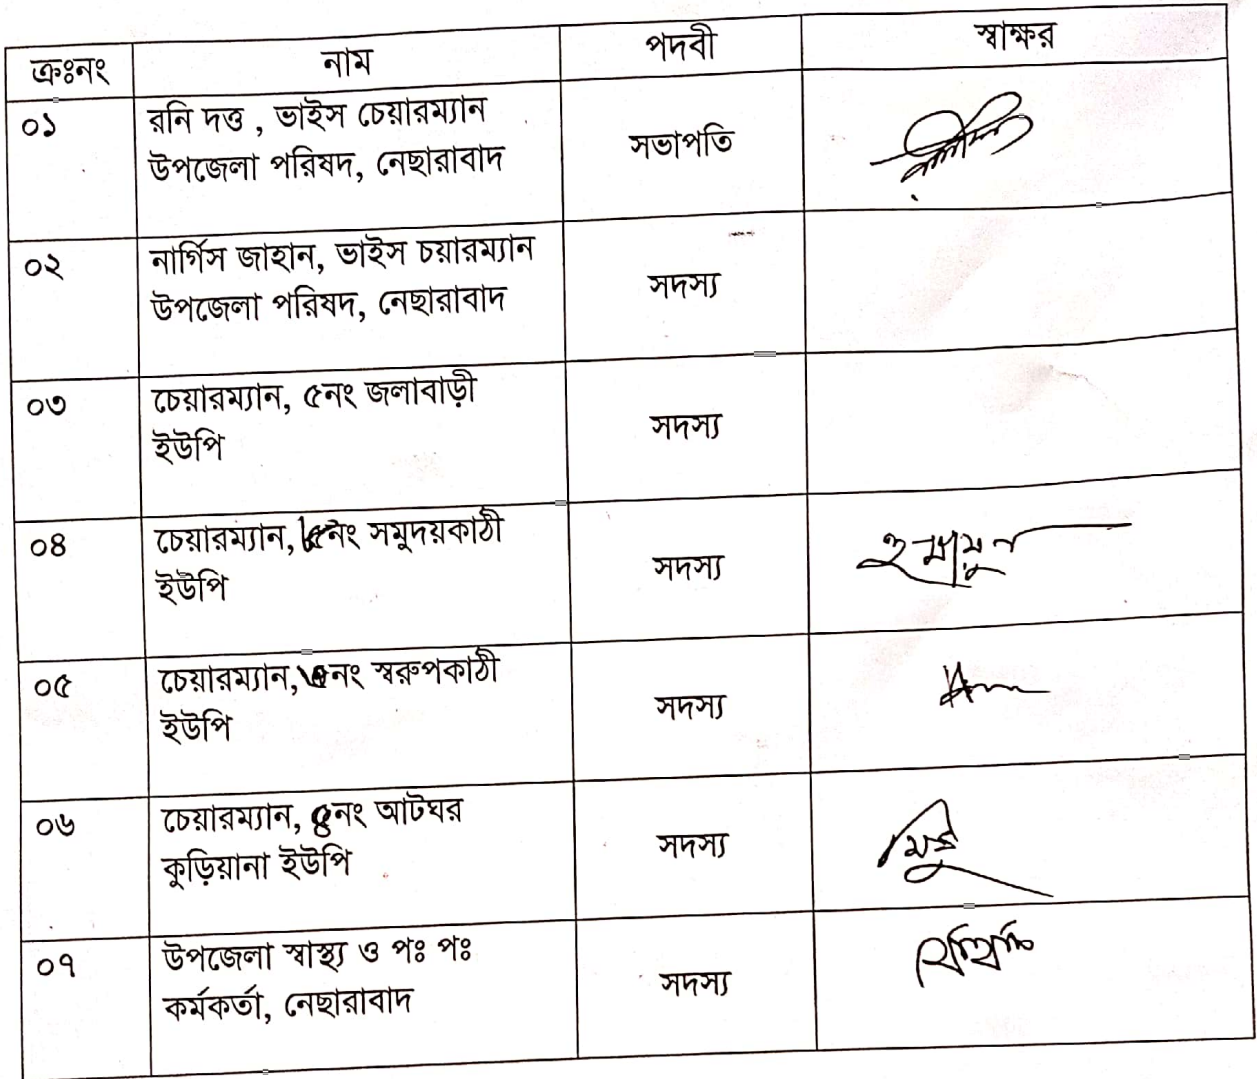 ক্রঃনং নাম পদবী স্বাক্ষর
০১ রনি দত্ত , ভাইস চেয়ারম্যান
উপজেলা পরিষদ, নেছারাবাদ সভাপতি
০২ নার্গিস জাহান, ভাইস চয়ারম্যান
উপজেলা পরিষদ, নেছারাবাদ সদস্য
০৩ চেয়ারম্যান, ৫নং জলাবাড়ী
ইউপি সদস্য
০৪ চেয়ারম্যান, সমুদয়কাঠী
ইউপি সদস্য হুমায়ুন
০৫ চেয়ারম্যান, স্বরুপকাঠী
ইউপি সদস্য
০৬ চেয়ারম্যান, আটঘর
কুড়িয়ানা ইউপি সদস্য
০৭ উপজেলা স্বাস্থ্য ও পঃ পঃ
কর্মকর্তা, নেছারাবাদ সদস্য